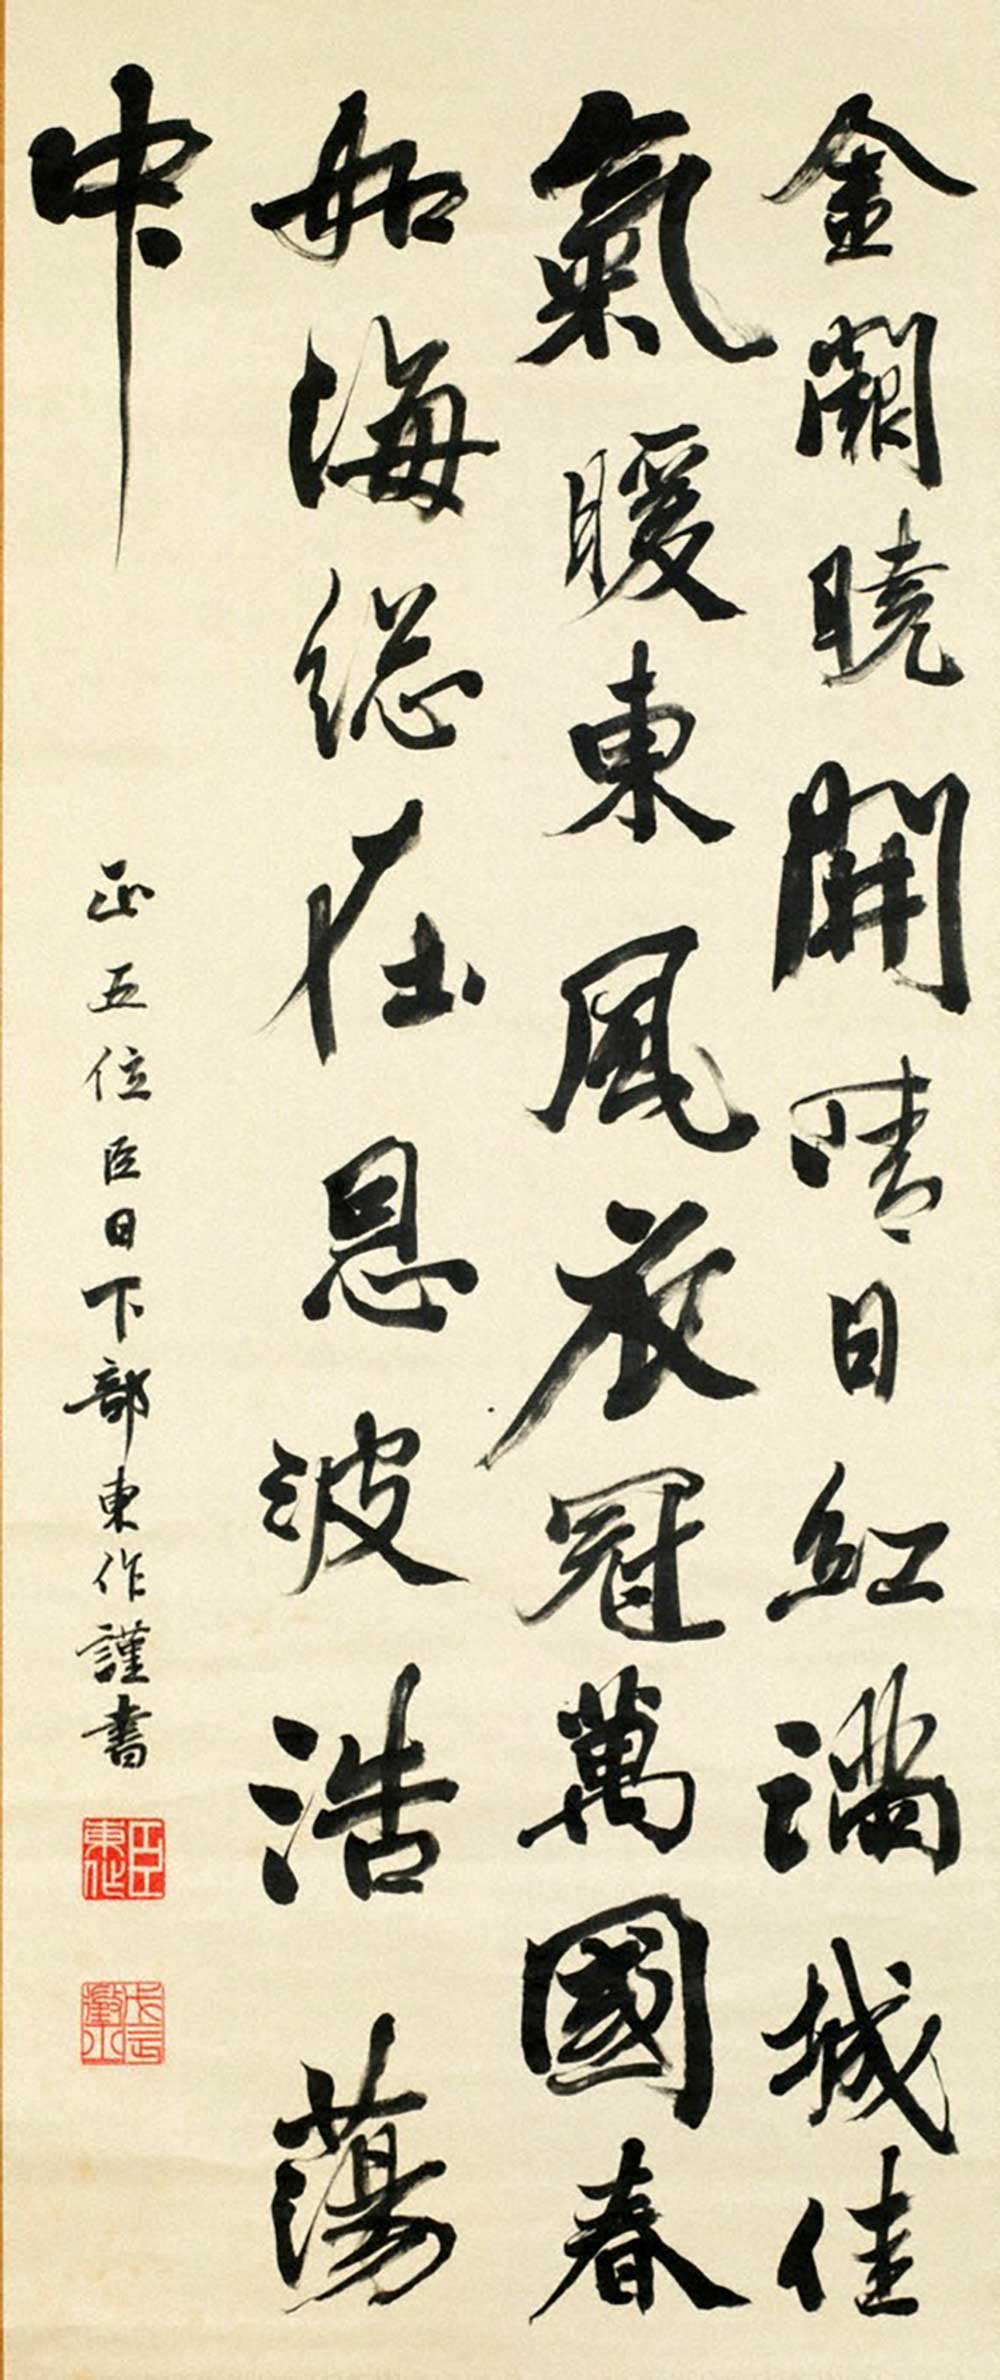 金闕曉開晴日紅滿城佳
氣暖東風衣冠萬國春
如海總在恩波浩蕩
中
正五位臣日下部東作謹書
臣東作